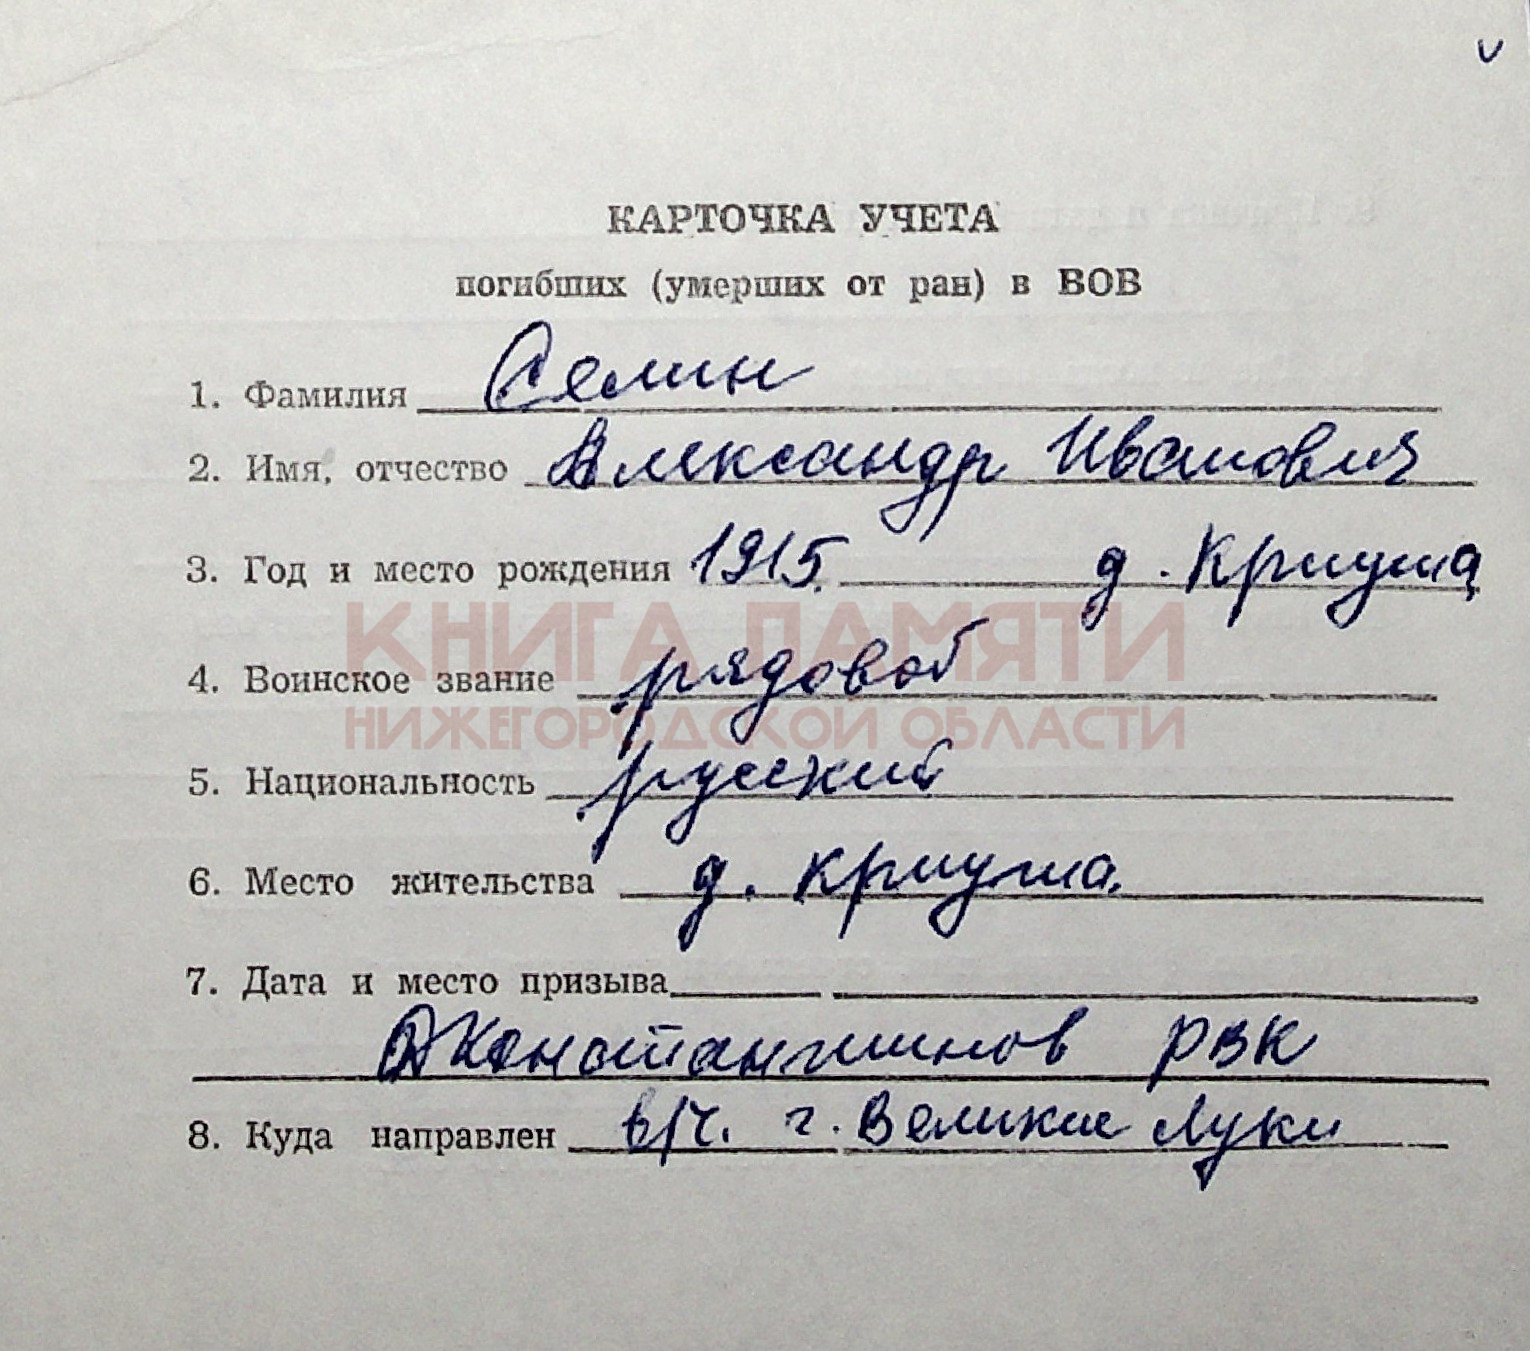 КАРТОЧКА УЧЕТА
погибших (умерших от ран) в ВОВ
1. Фамилия Семин
2. Имя, отчество Александр Иванович
3. Год и место рождения 1915. д. Криуша
КНИГА ПАМЯТИ
4. Воинское звание рядовой
НИЖЕГОРОДСКОЙ ОБЛАСТИ
5. Национальность русский
6. Место жительства д. Криуша.
7. Дата и место призыва
ДКонстантинов РВК
8. Куда направлен в/ч. г. Великие Луки